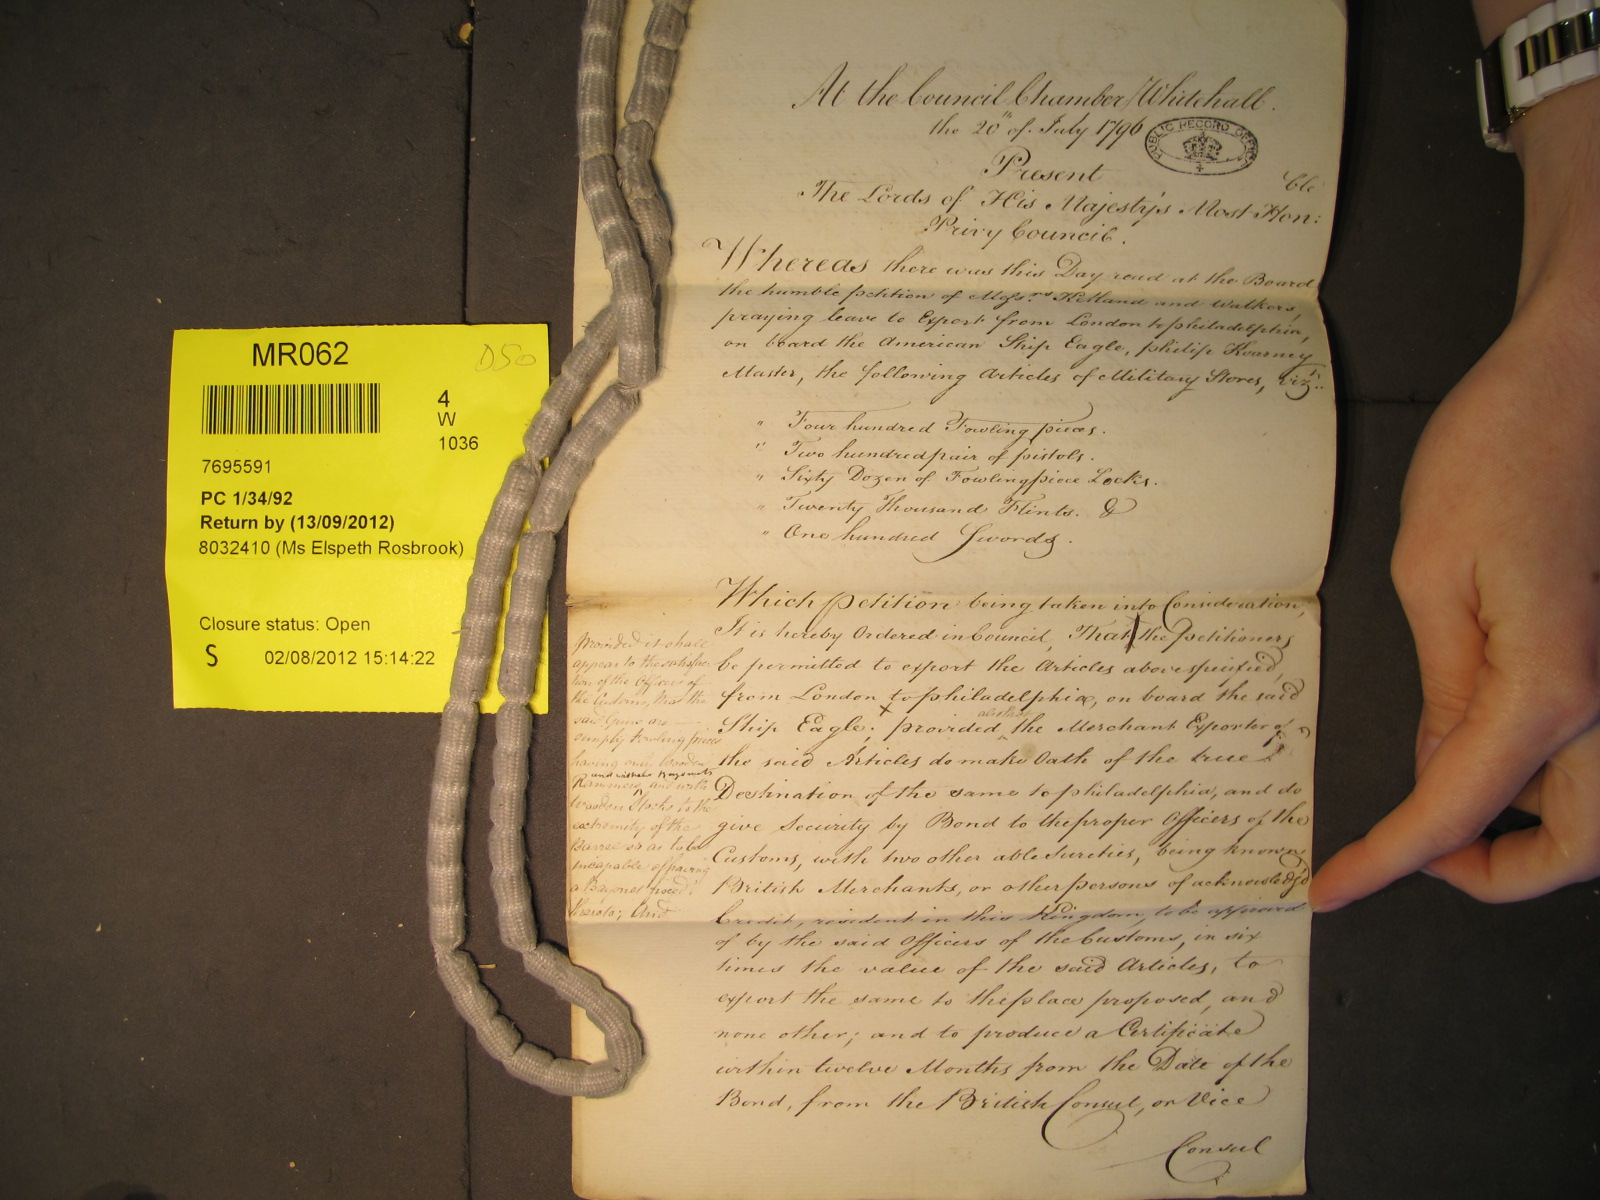 MR062
D50
4
W
1036
7695591
PC 1/34/92
Return by (13/09/2012)
8032410 (Ms Elspeth Rosbrook)
Closure status: Open
S 02/08/2012 15:14:22
At the Council Chamber Whitehall.
the 20th of July 1796
PUBLIC RECORD OFFICE
Present
The Lords of His Majesty's Most Hon:ble
Privy Council.
Whereas there was this Day read at the Board
the humble petition of Mess.rs Ketland and Walkers,
praying leave to Export from London to philadelphia,
on board the American Ship Eagle, philip Kearney
Master, the following Articles of Military Stores, viz.t
" Four hundred Fowling pieces.
" Two hundred pair of pistols.
" Sixty Dozen of Fowlingpiece Locks.
" Twenty Thousand Flints. &
" One hundred Swords.
Which petition being taken into Consideration,
It is hereby Ordered in Council, That the petitioners
be permitted to export the Articles above specified,
from London to philadelphia, on board the said
Ship Eagle; provided the Merchant Exporter of
also that
the said Articles do make Oath of the true
Destination of the same to philadelphia, and do
give Security by Bond to the proper Officers of the
Customs, with two other able Sureties, being known
British Merchants, or other persons of acknowledg'd
Credit, resident in this Kingdom, to be approved
of by the said Officers of the Customs, in six
times the value of the said Articles, to
export the same to the place proposed, and
none other; and to produce a Certificate
within twelve Months from the Date of the
Bond, from the British Consul, or Vice
Consul
provided it shall
appear to the satisfac-
tion of the Officers of
the Customs, that the
said Guns are
simply Fowling pieces
having only wooden
and without Bayonets
Rammers, and with
wooden Stocks to the
extremity of the
Barrel so as to be
incapable of having
a Bayonet fixed
thereto; And